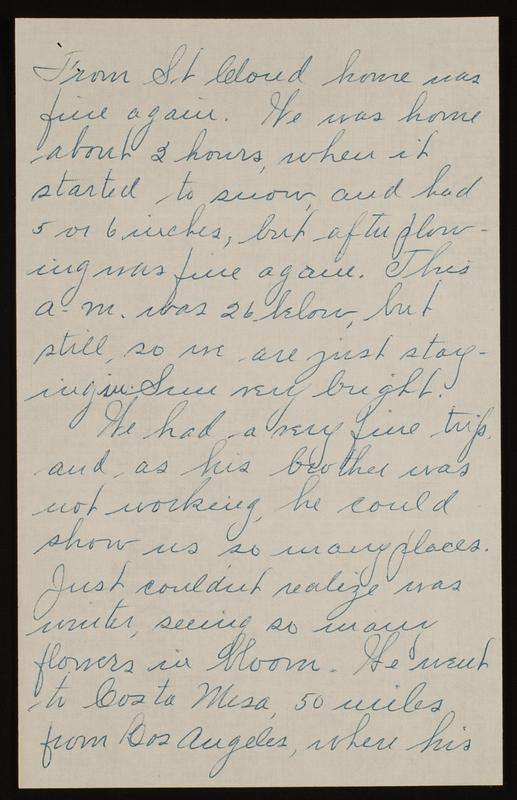 From St Cloud home was
fine again. We was home
about 2 hours, when it
started to snow, and had
5 or 6 inches, but after plow-
ing was fine again. This
a-m. was 26 below, but
still, so we are just stay-
ing in. Sun very bright.
We had a very fine trip,
and as his brother was
not working, he could
show us so many places.
Just couldn't realize was
winter, seeing so many
flowers in bloom. We went
to Costa Mesa, 50 miles
from Los Angeles, where his